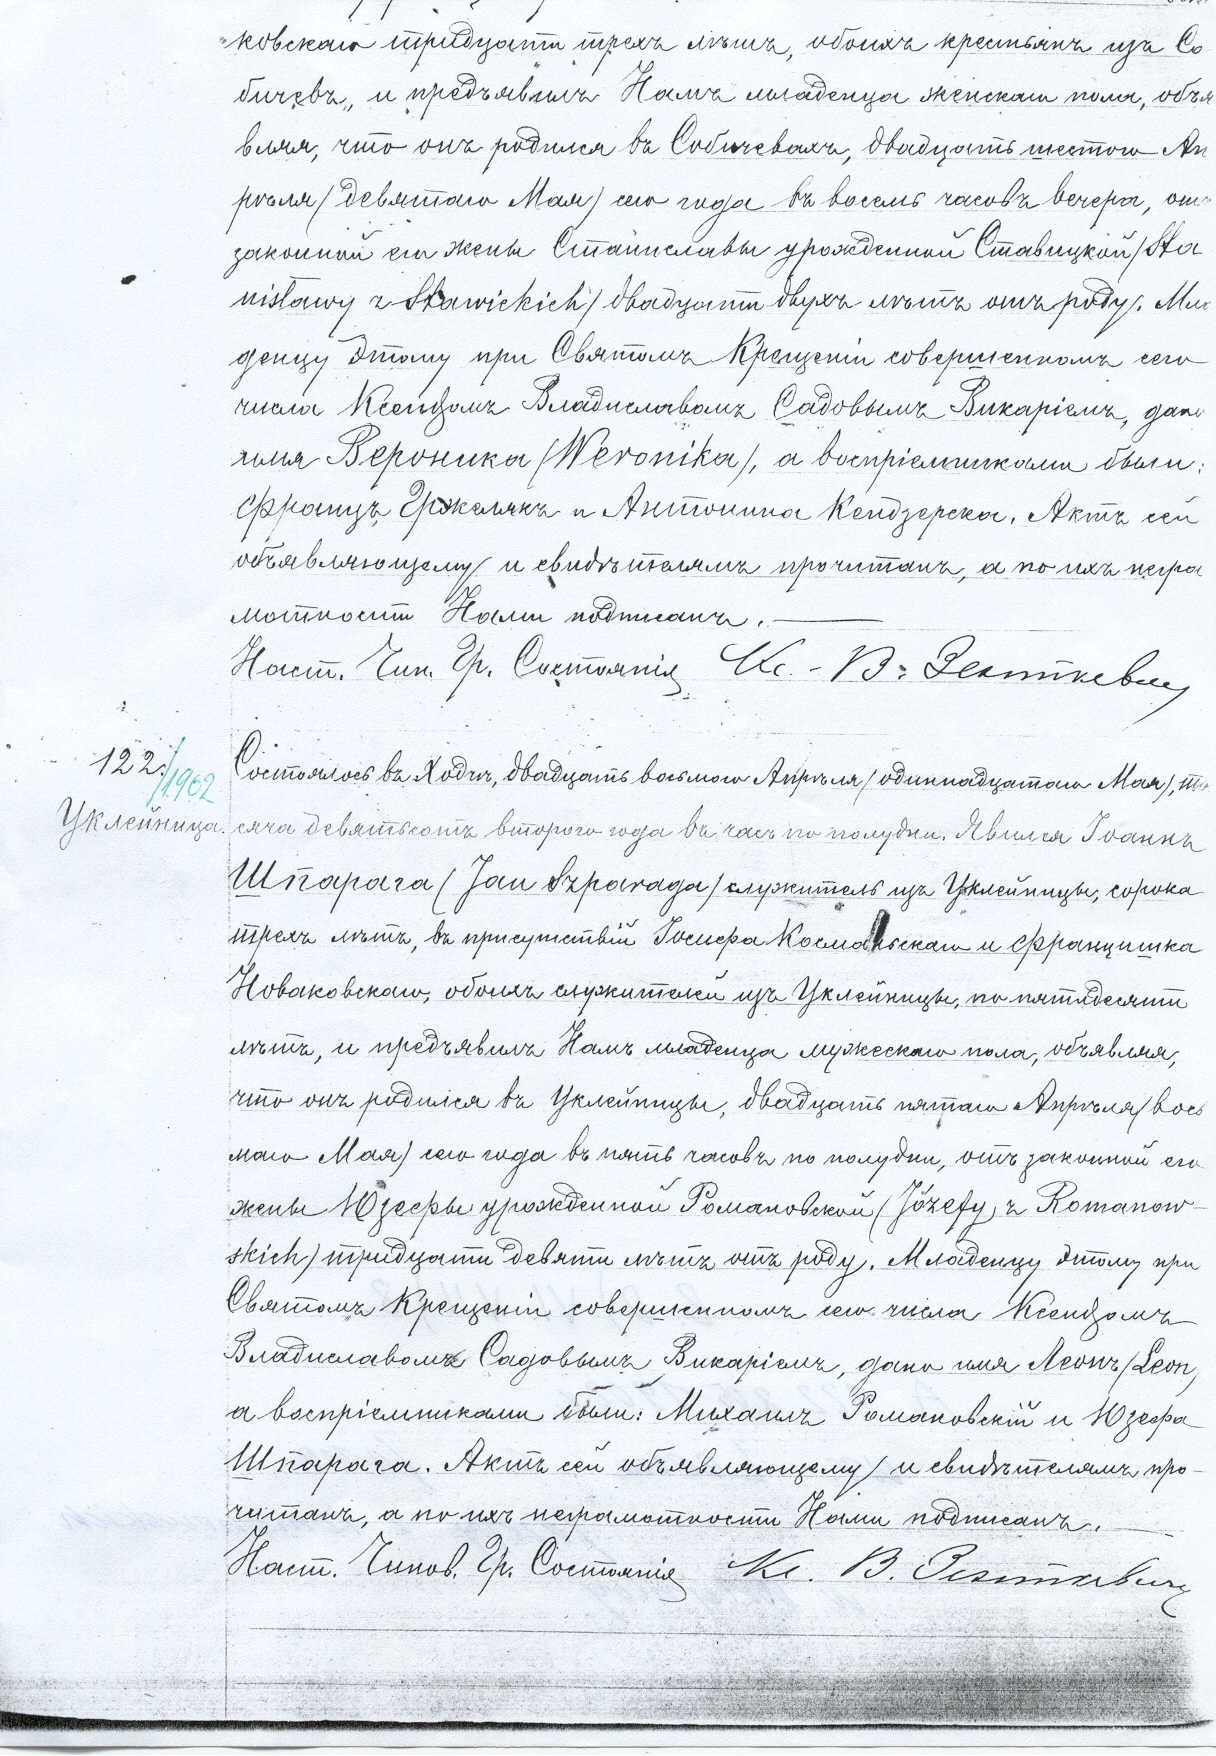 ковскаго тридцати трехъ лѣтъ, обоихъ крестьянъ изъ Со
бичевъ, и предъявилъ Намъ младенца женскаго пола, объя
вляя, что онъ родился въ Собичевахъ, двадцать шестого Ап
рѣля / девятаго Мая / сего года въ восемь часовъ вечера, отъ
законной его жены Станиславы урожденной Ставицкой / Sta
nisławy z Stawickich / двадцати двухъ лѣтъ отъ роду. Мла
денцу этому при Святомъ Крещеніи совершенномъ сего
числа Ксендзомъ Владиславомъ Садовымъ Викаріемъ, дано
имя Вероника / Weronika /, а воспріемниками были:
Францъ Гржелякъ и Антонина Кендзерска. Актъ сей
объявляющему и свидѣтелямъ прочитанъ, а по ихъ негра
мотности Нами подписанъ.
Наст. Чин. Гр. Состоянія Кс. В.
122. /1902
Уклейница.
Состоялось въ Ходчѣ, двадцать восьмого Апрѣля / одиннадцатаго Мая /, ты
сяча девятьсотъ второго года въ часъ по полудни. Явился Іоаннъ
Шпарага / Jan Szparaga / служитель изъ Уклейницы, сорока
трехъ лѣтъ, въ присутствіи Іосифа и Францишка
Новаковскаго, обоихъ служителей изъ Уклейницы, по пятидесяти
лѣтъ, и предъявилъ Намъ младенца мужескаго пола, объявляя,
что онъ родился въ Уклейницы, двадцать пятаго Апрѣля / вось
маго Мая / сего года въ пять часовъ по полудни, отъ законной его
жены Юзефы урожденной Романовской / Józefy z Romanow-
skich / тридцати девяти лѣтъ отъ роду. Младенцу этому при
Святомъ Крещеніи совершенномъ сего числа Ксендзомъ
Владиславомъ Садовымъ Викаріемъ, дано имя Леонъ / Leon,
а воспріемниками были: Михаилъ Романовскій и Юзефа
Шпарага. Актъ сей объявляющему и свидѣтелямъ про-
читанъ, а по ихъ неграмотности Нами подписанъ.
Наст. Чинов. Гр. Состоянія Кс. В.